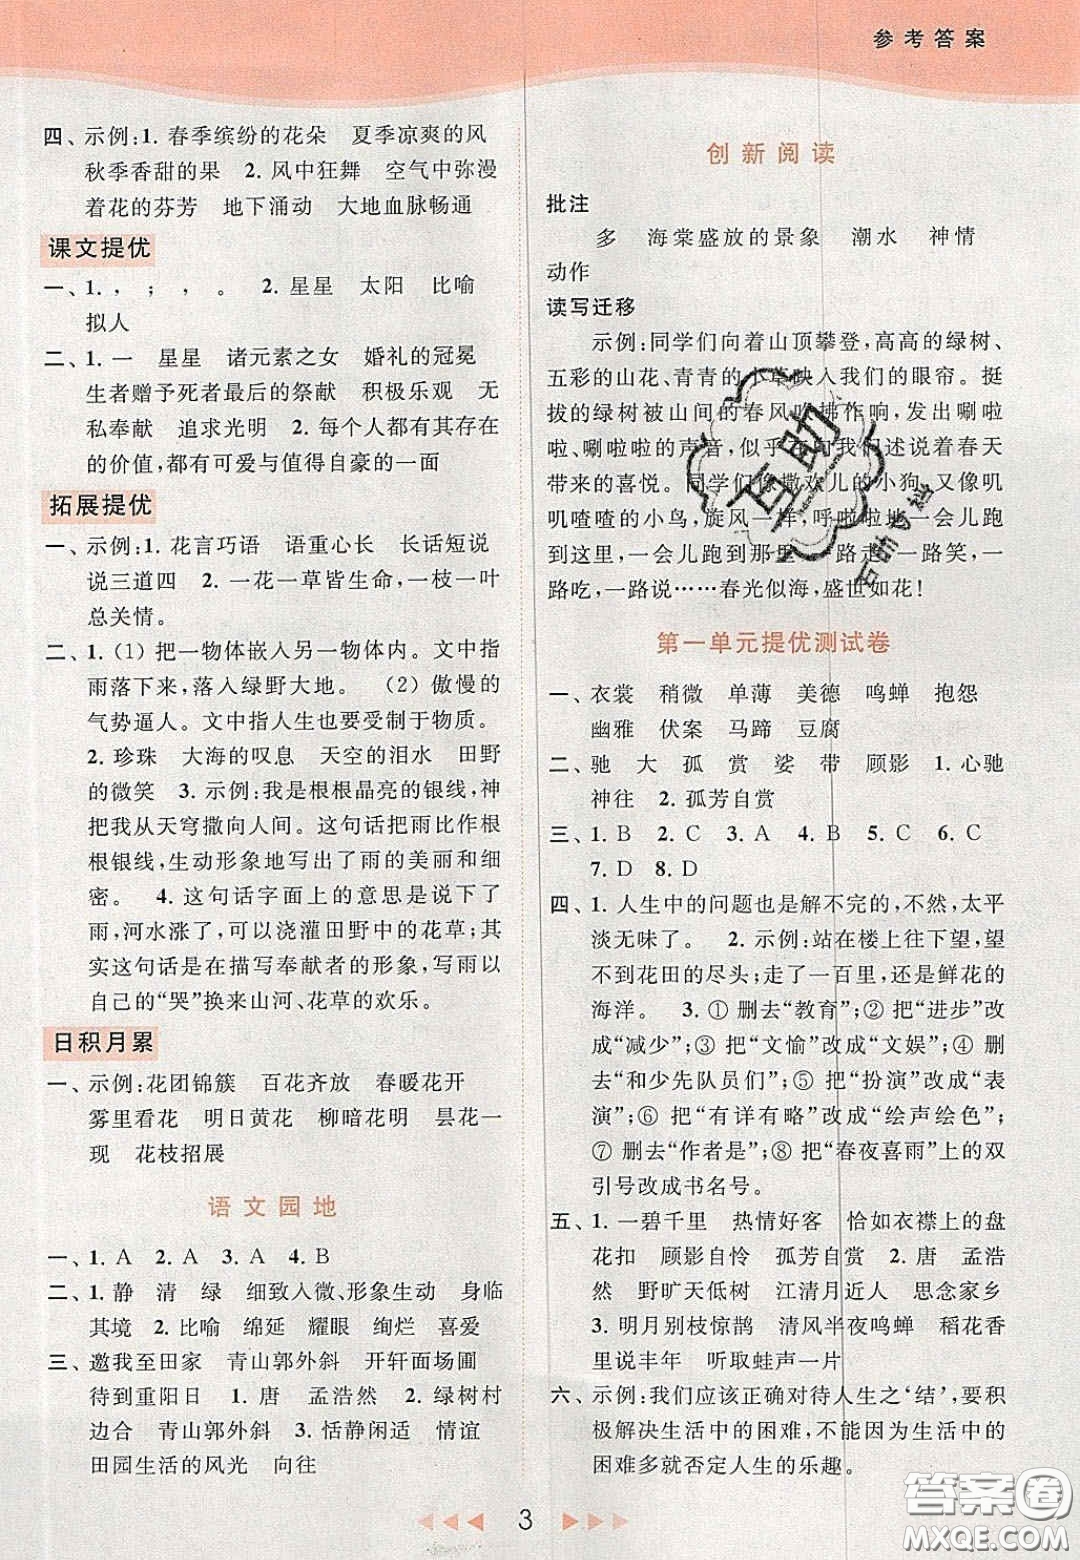 参考答案
四、示例:1. 春季缤纷的花朵　夏季凉爽的风
秋季香甜的果　2. 风中狂舞　空气中弥漫
着花的芬芳　地下涌动　大地血脉畅通
课文提优
一、1. ，　；　，　。　2. 星星　太阳　比喻
拟人
二、1. 一　星星　诸元素之女　婚礼的冠冕
生者赠予死者最后的祭献　积极乐观　无
私奉献　追求光明　2. 每个人都有其存在
的价值,都有可爱与值得自豪的一面
拓展提优
一、示例:1. 花言巧语　语重心长　长话短说
说三道四　2. 一花一草皆生命,一枝一叶
总关情。
二、1.(1) 把一物体嵌入另一物体。文中指
雨落下来,落入绿野大地。　(2) 傲慢的
气势逼人。文中指人生也要受制于物质。
2. 珍珠　大海的叹息　天空的泪水　田野
的微笑　3. 示例:我是根根晶亮的银线,神
把我从天穹撒向人间。这句话把雨比作根
根银线,生动形象地写出了雨的美丽和细
密。　4. 这句话字面上的意思是说下了
雨,河水涨了,可以浇灌田野中的花草;其
实这句话是在描写奉献者的形象,写雨以
自己的“哭”换来山河、花草的欢乐。
日积月累
一、示例:花团锦簇　百花齐放　春暖花开
雾里看花　明日黄花　柳暗花明　昙花一
现　花枝招展
语文园地
一、1. A　2. A　3. A　4. B
二、1. 静　清　绿　细致入微、形象生动　身临
其境　2. 比喻　绵延　耀眼　绚烂　喜爱
三、邀我至田家　青山郭外斜　开轩面场圃
待到重阳日　1. 唐　孟浩然　2. 绿树村
边合　青山郭外斜　3. 恬静闲适　情谊
田园生活的风光　向往
创新阅读
批注
多　海棠盛放的景象　潮水　神情
动作
读写迁移
示例:同学们向着山顶攀登,高高的绿树、
五彩的山花、青青的小草映入我们的眼帘。挺
拔的绿树被山间的春风吹拂作响,发出唰啦
啦、唰啦啦的声音,似乎在向我们述说着春天
带来的喜悦。同学们像撒欢儿的小狗,又像叽
叽喳喳的小鸟,旋风一样,呼啦啦地一会儿跑
到这里,一会儿跑到那里,一路走,一路笑,一
路吃,一路说……春光似海,盛世如花!
第一单元提优测试卷
一、衣裳　稍微　单薄　美德　鸣蝉　抱怨
幽雅　伏案　马蹄　豆腐
二、驰　大　孤　赏　娑　带　顾影　1. 心驰
神往　2. 孤芳自赏
三、1. B　2. C　3. A　4. B　5. C　6. C
7. D　8. D
四、1. 人生中的问题也是解不完的,不然,太平
淡无味了。　2. 示例:站在楼上往下望,望
不到花田的尽头;走了一百里,还是鲜花的
海洋。　3. ① 删去“教育”;② 把“进步”改
成“减少”;③ 把“文愉”改成“文娱”;④ 删
去“和少先队员们”;⑤ 把“扮演”改成“表
演”;⑥ 把“有详有略”改成“绘声绘色”;
⑦ 删去“作者是”;⑧ 把“春夜喜雨”的双
引号改成书名号。
五、1. 一碧千里　热情好客　恰如衣襟上的盘
花扣　顾影自怜　孤芳自赏　2. 唐　孟浩
然　野旷天低树　江清月近人　思念家乡
3. 明月别枝惊鹊　清风半夜鸣蝉　稻花香
里说丰年　听取蛙声一片
六、示例:我们应该正确对待人生之‘结’,要积
极解决生活中的困难,不能因为生活中的
困难多就否定人生的乐趣。
3
互助
答案圈
MXQE.COM